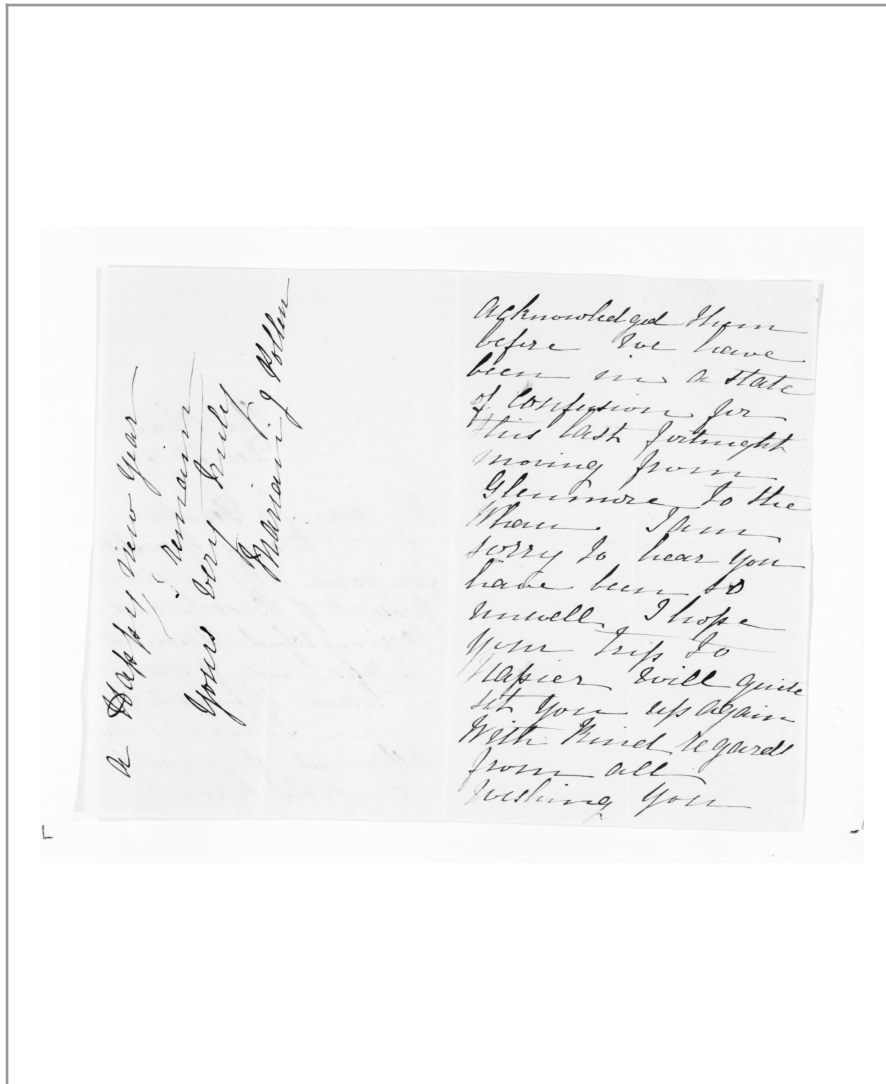 acknowledged them
before we have
been in a state
of confusion for
this last fortnight
moving from
Glenmore to the
Whau. I am
sorry to hear you
have been so
unwell I hope
your trip to
Napier will quite
set you up again
With Kind regards
from all
wishing you
a Happy New Year
I remain
yours very truly
Marian J Pollen